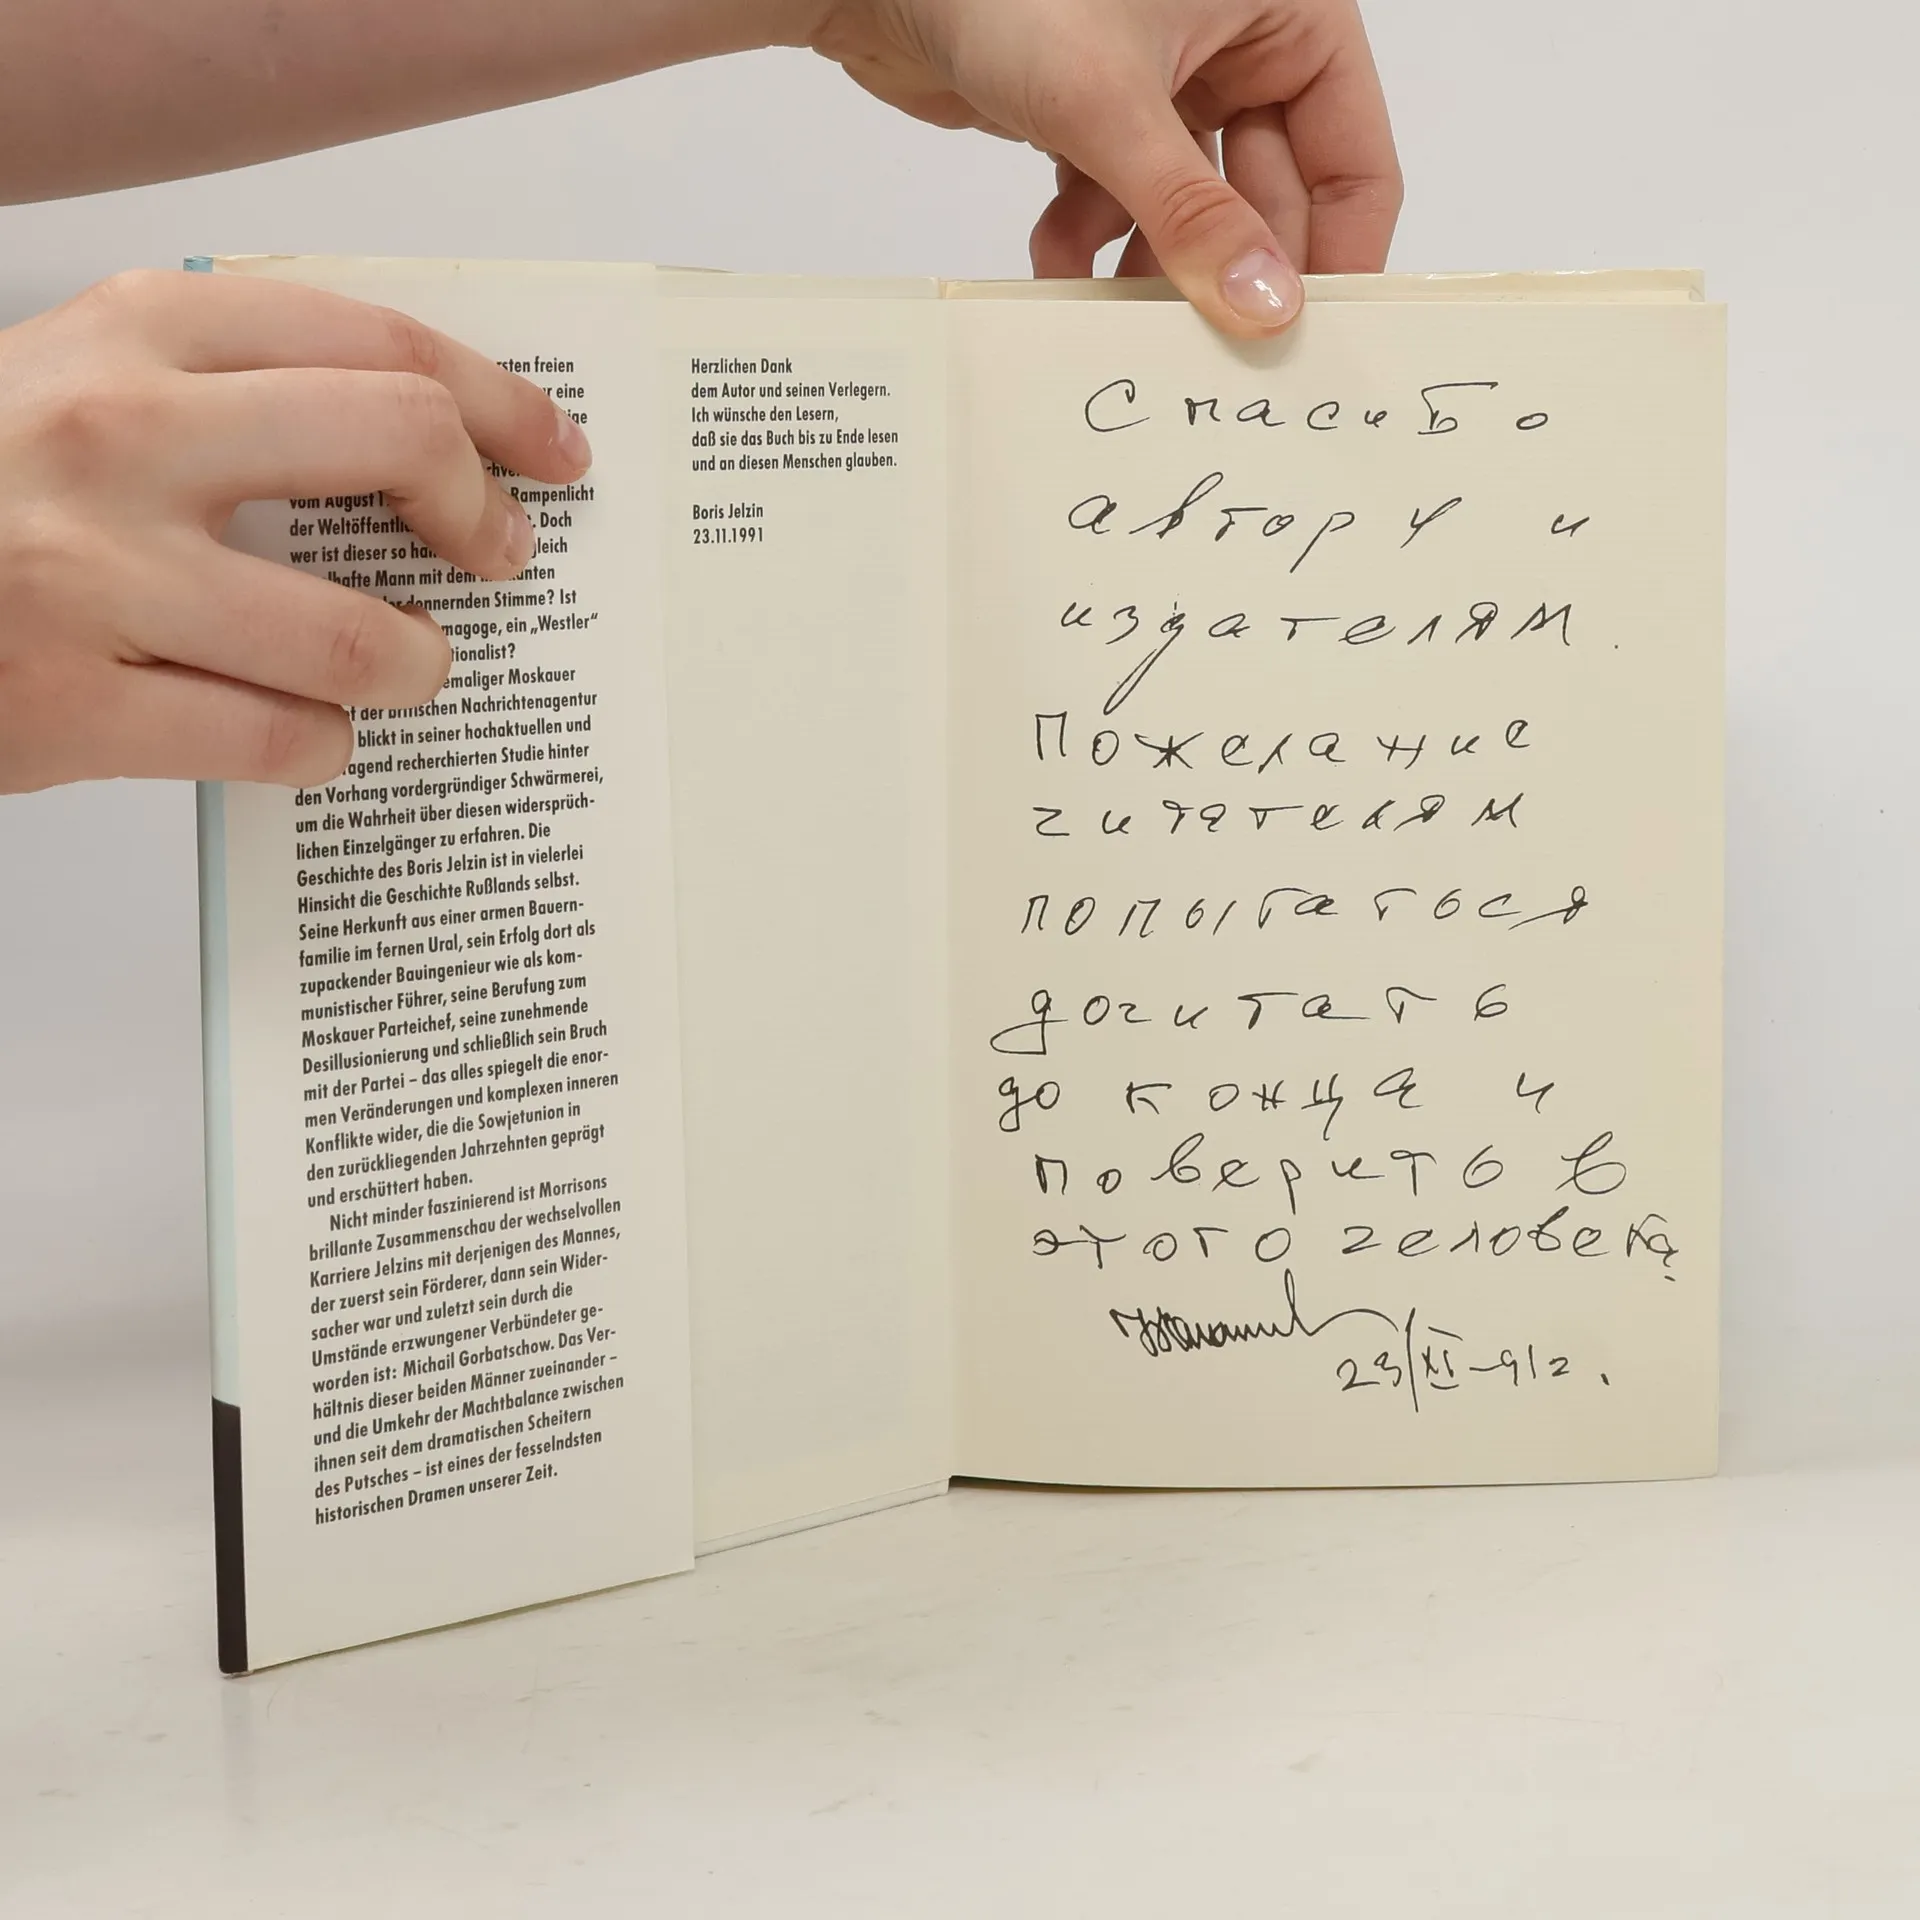 rsten freien
r eine
ige
vom August 1 Rampenlicht
der Weltöffentli . Doch
wer ist dieser so ha gleich
lhafte Mann mit dem
donnernden Stimme? Ist
magoge, ein „Westler“
tionalist?
emaliger Moskauer
der britischen Nachrichtenagentur
blickt in seiner hochaktuellen und
agend recherchierten Studie hinter
den Vorhang vordergründiger Schwärmerei,
um die Wahrheit über diesen widersprüch-
lichen Einzelgänger zu erfahren. Die
Geschichte des Boris Jelzin ist in vielerlei
Hinsicht die Geschichte Rußlands selbst.
Seine Herkunft aus einer armen Bauern-
familie im fernen Ural, sein Erfolg dort als
zupackender Bauingenieur wie als kom-
munistischer Führer, seine Berufung zum
Moskauer Parteichef, seine zunehmende
Desillusionierung und schließlich sein Bruch
mit der Partei – das alles spiegelt die enor-
men Veränderungen und komplexen inneren
Konflikte wider, die die Sowjetunion in
den zurückliegenden Jahrzehnten geprägt
und erschüttert haben.
Nicht minder faszinierend ist Morrisons
brillante Zusammenschau der wechselvollen
Karriere Jelzins mit derjenigen des Mannes,
der zuerst sein Förderer, dann sein Wider-
sacher war und zuletzt sein durch die
Umstände erzwungener Verbündeter ge-
worden ist: Michail Gorbatschow. Das Ver-
hältnis dieser beiden Männer zueinander –
und die Umkehr der Machtbalance zwischen
ihnen seit dem dramatischen Scheitern
des Putsches – ist eines der fesselndsten
historischen Dramen unserer Zeit.
Herzlichen Dank
dem Autor und seinen Verlegern.
Ich wünsche den Lesern,
daß sie das Buch bis zu Ende lesen
und an diesen Menschen glauben.
Boris Jelzin
23.11.1991
Спасибо
автору и
издателям.
Пожелание
читателям
попытаться
дочитать
до конца и
поверить в
этого человека.
23/XI-91г.